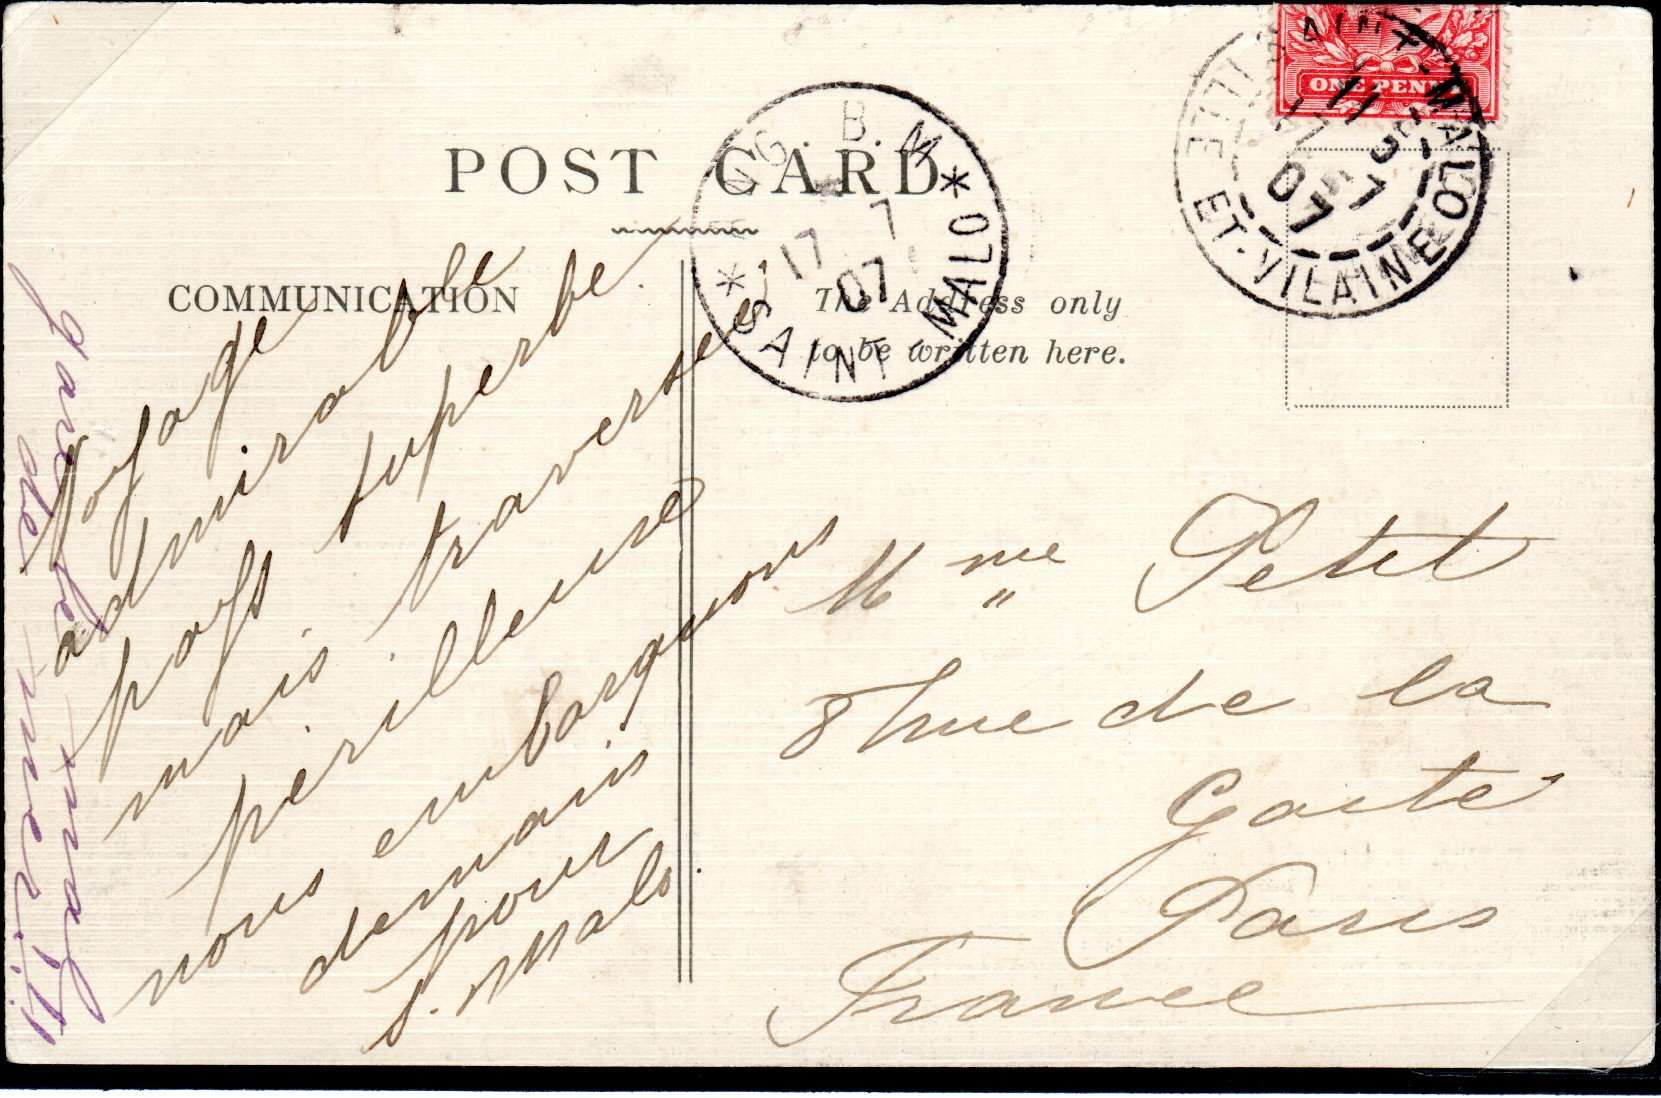 POST CARD
COMMUNICATION
The Address only
to be written here.
ONE PENNY
SAINT-MALO
ILLE-ET-VILAINE
11
17 7
07
ANG. B.M
17 7
07
SAINT-MALO
Voyage
admirable
pays superbe.
mais traversée
périlleuse
nous embarquons
demain
pour
S. Malo.
gare le mal
de mer!!!
Mme Petit
8 rue de la
Gaité
Paris
France